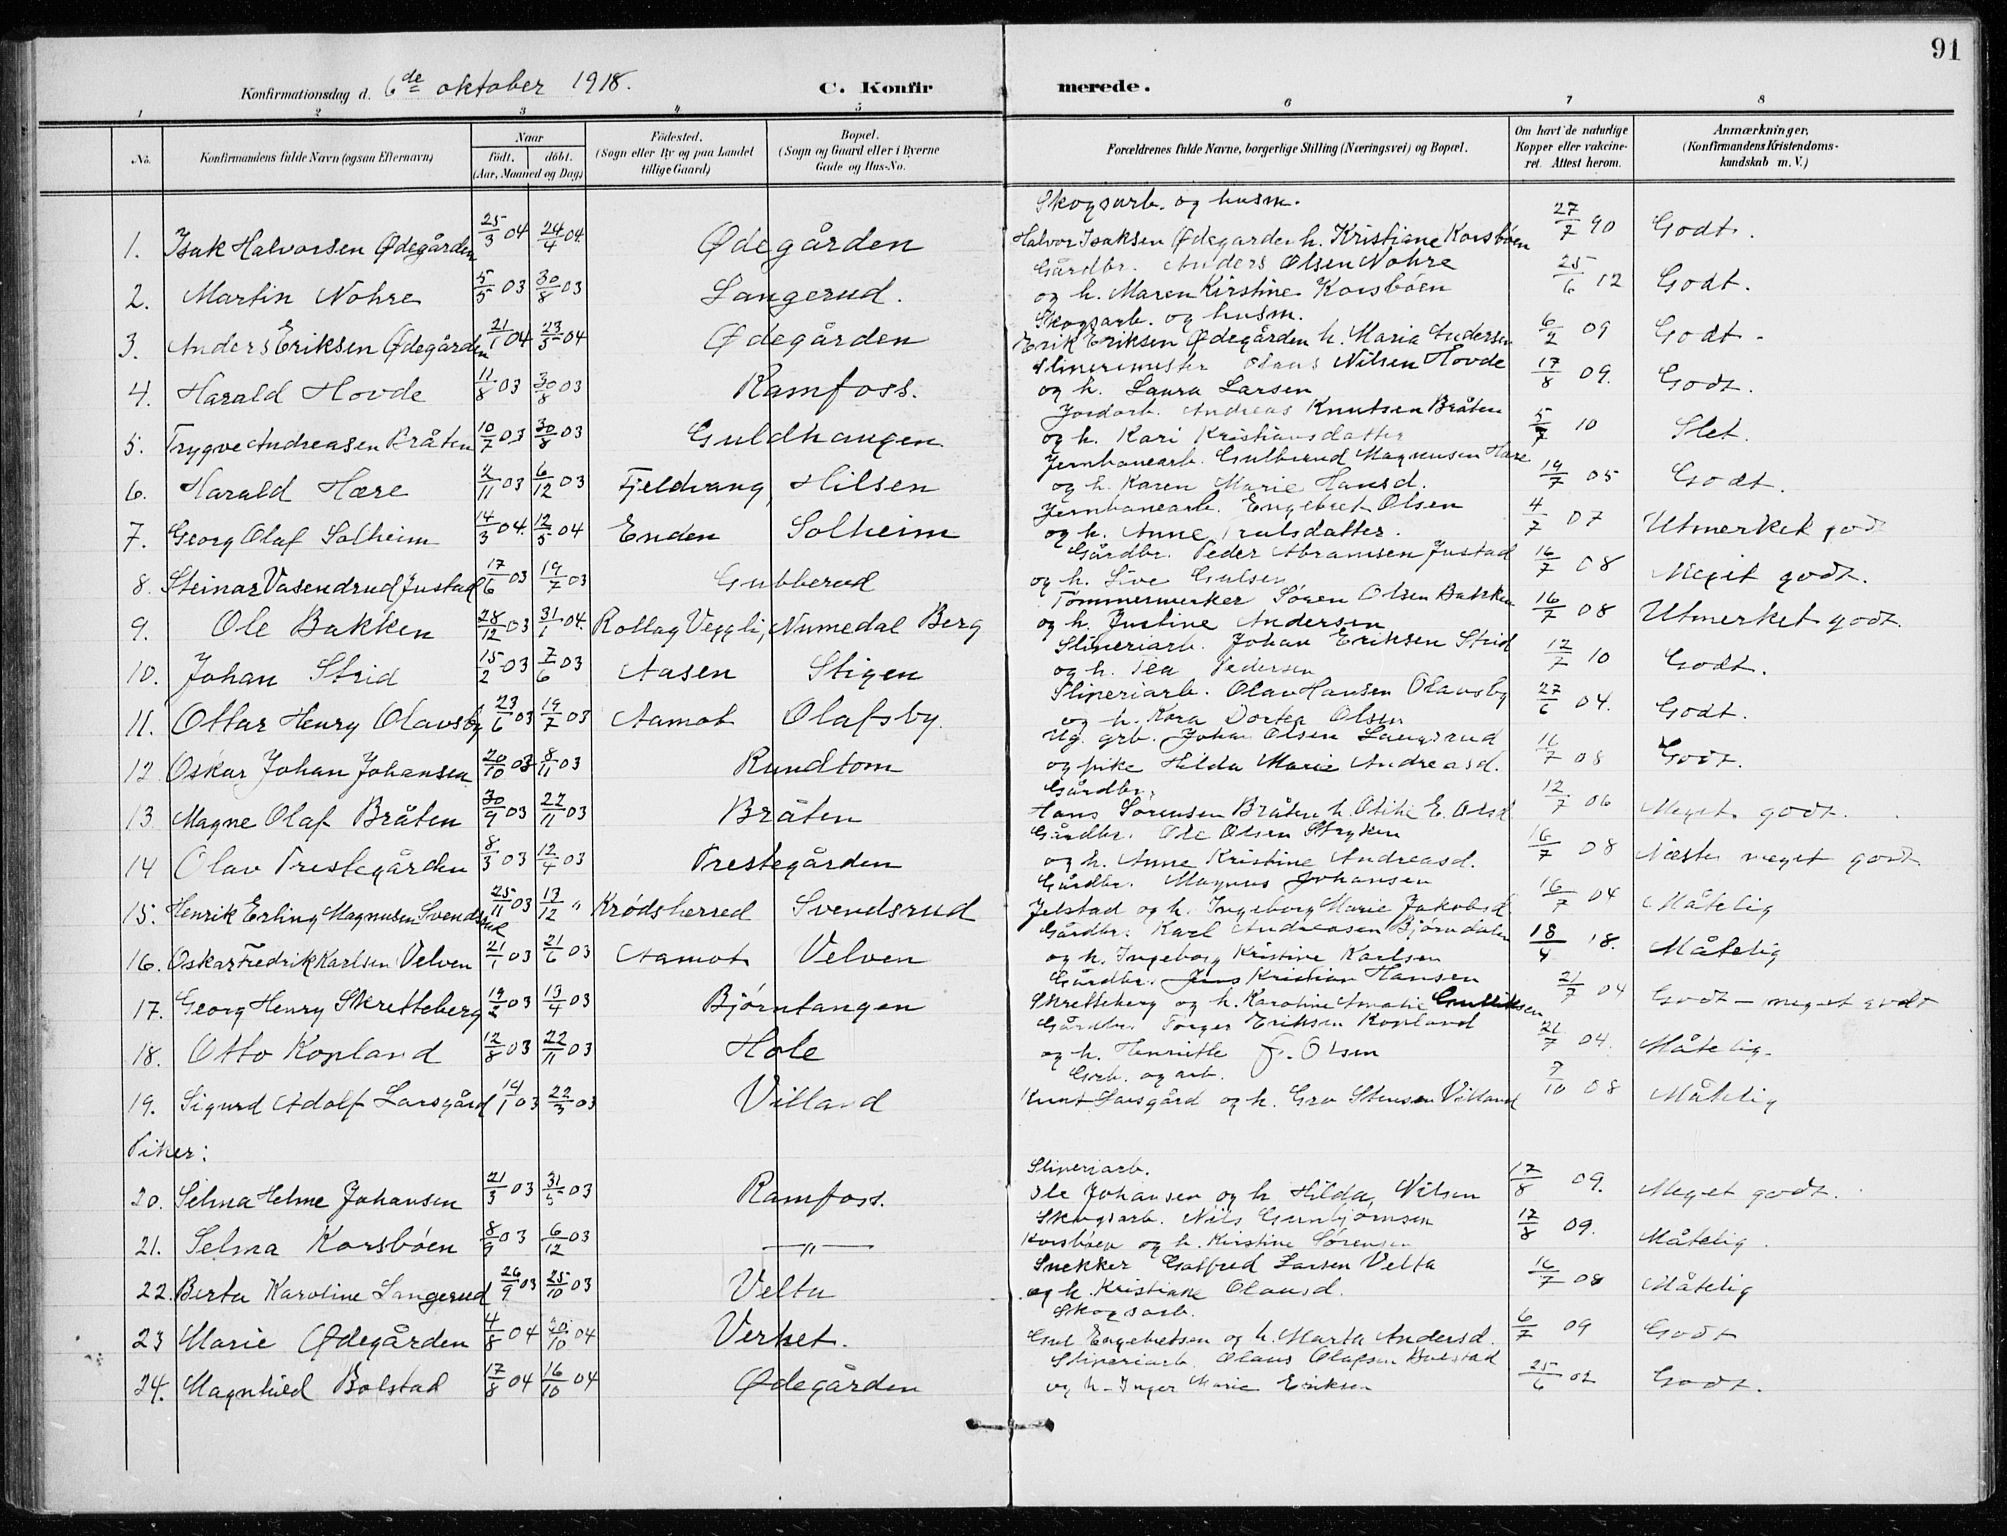 91
Konfirmationsdag d. 6de oktober 1918. C. Konfirmerede.
1 2 3 4 5 6 7 8
No. Konfirmandens fulde Navn (ogsaa Efternavn) Naar födt. döbt. (Aar, Maaned og Dag) Födested. (Sogn eller By og paa Landet tillige Gaard) Bopæl. (Sogn og Gaard eller i Byerne Gade og Hus-No. Forældrenes fulde Navne, borgerlige Stilling (Næringsvei) og Bopæl. Om havt de naturlige Kopper eller vakcineret. Attest herom. Anmærkninger, (Konfirmandens Kristendomskundskab m. V.)
Skogsarb. og husm.
1. Isak Halvorsen Ødegården 25/3 04 24/4 04. Ødegården Halvor Isaksen Ødegarden h. Kristiane Korsbøen 27/7 90 Godt.
Gårdbr. Anders Olsen Nohre
2. Martin Nohre 5/5 03 30/8 03 Langerud. og h. Maren Kirstine Korsbøen 25/6 12 Godt.
Skogsarb. og husm.
3. Anders Eriksen Ødegården 21/1 04 23/3 04 Ødegården Erik Eriksen Ødegården h. Maria Andersen 6/2 09 Godt.
Sliperimester Olaus Nilsen Hovde
4. Harald Hovde 11/8 03 30/8 03 Ramfoss. og h. Laura Larsen 17/8 09. Godt.
Jordarb. Andreas Knutsen Bråten
5. Trygve Andreasen Bråten 10/7 03 30/8 03 Guldhaugen og h. Kari Kristiansdatter 5/7 10 Slet.
Jernbanearb. Gulbrand Magnusen Hære
6. Harald Hære 2/11 03 6/12 03 Fjeldvang Hilsen og h. Karen Marie Hansd. 19/7 05 Godt.
Jernbanearb. Engebret Olsen
7. Georg Olaf Solheim 14/3 04. 12/5 04 Enden Solheim og h. Anne Trulsdatter. 4/7 07 Utmerket godt
Gårdbr. Peder Abramsen Justad
8. Steinar Vasendrud Justad 17/6 03 19/7 03 Gubberud og h. Live Gulsen 16/7 08 Meget godt.
Tømmermerker Søren Olsen Bakken
9. Ole Bakken 28/12 03 31/1 04. Rollag Veggli, Numedal Berg og h. Justine Andersen 16/7 08 Utmerket godt.
Sliperiarb. Johan Eriksen Strid
10. Johan Strid 15/2 03 7/6 03 Aasen Stigen og h. Tea Pedersen 12/7 10 Godt.
Sliperiarb. Olav Hansen Olavsby
11. Ottar Henry Olavsby 23/6 03 19/7 03 Aamot Olafsby. og h. Kara Dortea Olsen 27/6 04. Godt.
Ug. grb. Johan Olsen Langsrud
12 Oskar Johan Johansen 20/10 03 8/11 03 Rundtom og pike Hilda Marie Andreasd. 16/7 08 Godt.
Gårdbr.
13 Magne Olaf Bråten 30/9 03 22/11 03 Bråten Hans Sørensen Bråten h. Otilie E. Olsd. 12/7 06 Meget godt.
Gårdbr. Ole Olsen Stryken
14 Olav Prestegården 8/3 03 12/4 03 Prestegården og h. Anne Kristine Andreasd. 16/7 08 Næsten meget godt
Gårdbr. Magnus Johansen
15. Henrik Erling Magnusen Svendsrud 25/11 03 13/12 " Krødsherred Svendsrud Jelstad og h. Ingeborg Marie Jakobsd. 16/7 04 Måtelig
Gårdbr. Karl Andreasen Bjørndalen
16. Oskar Fredrik Karlsen Velven 21/1 03 21/6 03 Aamot Velven og h. Ingeborg Kristine Karlsen 18/4 18. Måtelig
Gårdbr. Jens Kristian Hansen
17. Georg Henry Skretteberg 19/2 03 13/4 03 Bjørntangen Skretteberg og h. Karoline Amalie Gulliksen 21/7 04 Godt – meget godt
Gårdbr. Torger Eriksen Kopland
18. Otto Kopland 12/8 03 22/11 03 Hole og h. Henriette J. Olsen 21/7 04. Måtelig.
Grb. og arb.
19. Sigurd Adolf Larsgård 14/1 03 22/3 03 Villand Knut Larsgård og h. Gro Stensen Villand 7/10 08 Måtelig
Piker:
Sliperiarb.
20. Selma Helme Johansen 21/3 03 31/5 03 Ramfoss. Ole Johansen og h Hilda Nilsen 17/8 09. Meget godt.
Skogsarb. Nils Gunbjørnsen
21. Selma Korsbøen 8/9 03 6/12 03 —"— Korsbøen og h. Kirstine Sørensen 17/8 09. Måtelig.
Snekker Gotfred Larsen Velta
22. Berta Karoline Langerud 26/9 03 25/10 03 Velta og h. Kristiane Olausd. 16/7 08 Måtelig
Skogsarb.
23 Marie Ødegården 4/8 04 30/10 04 Verket. Gul. Engebretsen og h. Marta Andersd. 6/7 09 Godt
Sliperiarb. Olaus Olafsen Bolstad
24. Magnhild Bolstad 17/8 04 16/10 04 Ødegården og h. Inger Marie Eriksen 25/6 Godt.